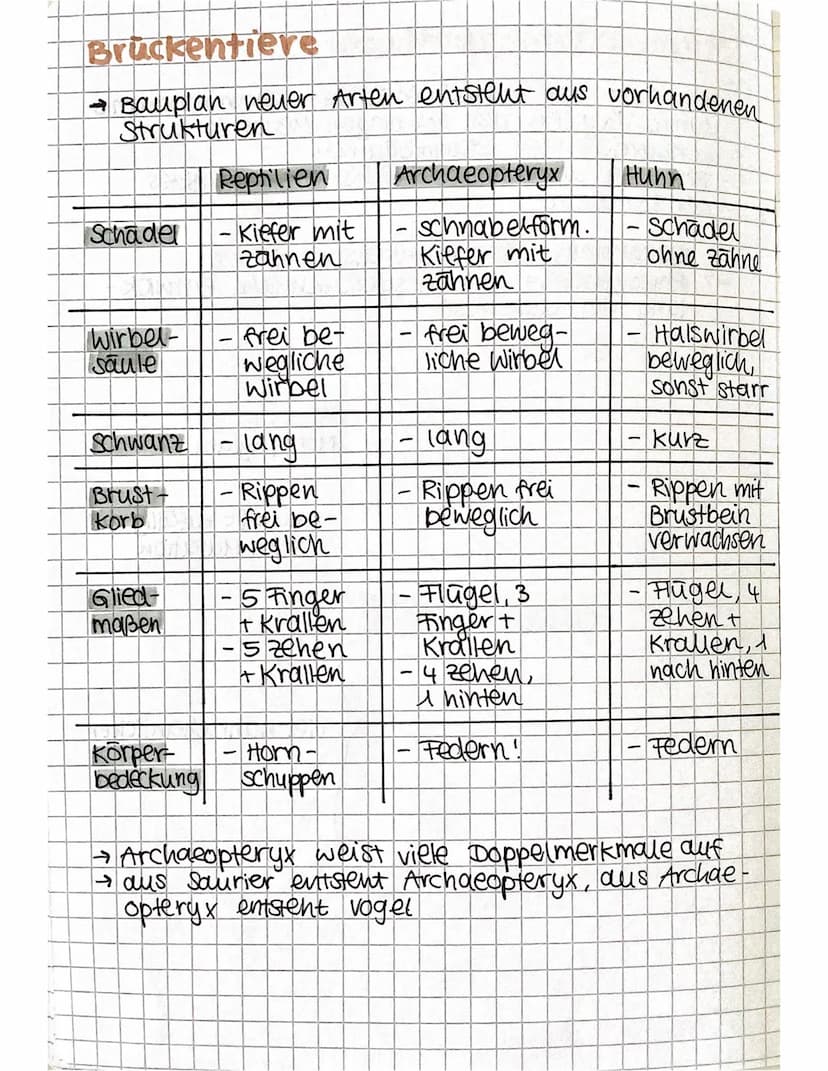 Brückentiere
→ Bauplan neuer Arten entsteht aus vorhandenen
Strukturen
Reptilien Archaeopteryx Huhn
Schädel - Kiefer mit - schnabelförm. - Schädel
zähnen Kiefer mit ohne zähne
zähnen
Wirbel- - frei be- - frei beweg- - Halswirbel
säule wegliche liche Wirbel beweglich,
Wirbel sonst starr
Schwanz - lang - lang - kurz
Brust- - Rippen - Rippen frei - Rippen mit
korb frei be- beweglich Brustbein
weglich verwachsen
Glied- - 5 Finger - Flügel, 3 - Flügel, 4
maßen + Krallen Finger + zehen +
- 5 zehen Krallen Krallen, 1
+ Krallen - 4 zehen, nach hinten
1 hinten
Körper- - Horn- - Federn! - Federn
bedeckung schuppen
→ Archaeopteryx weist viele Doppelmerkmale auf
→ aus Saurier entsteht Archaeopteryx, aus Archae-
opteryx entsteht vogel